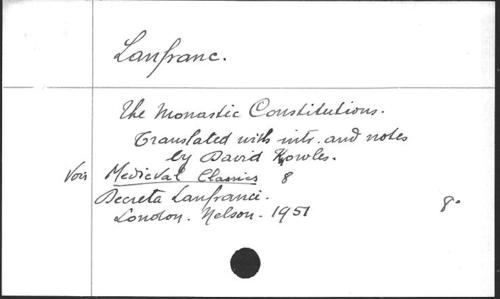 Lanfranc.
The Monastic Constitutions.
Translated with intr. and notes
by David Knowles.
Voir Medieval Classics 8
Decreta Lanfranci.
London. Nelson. 1951 8°